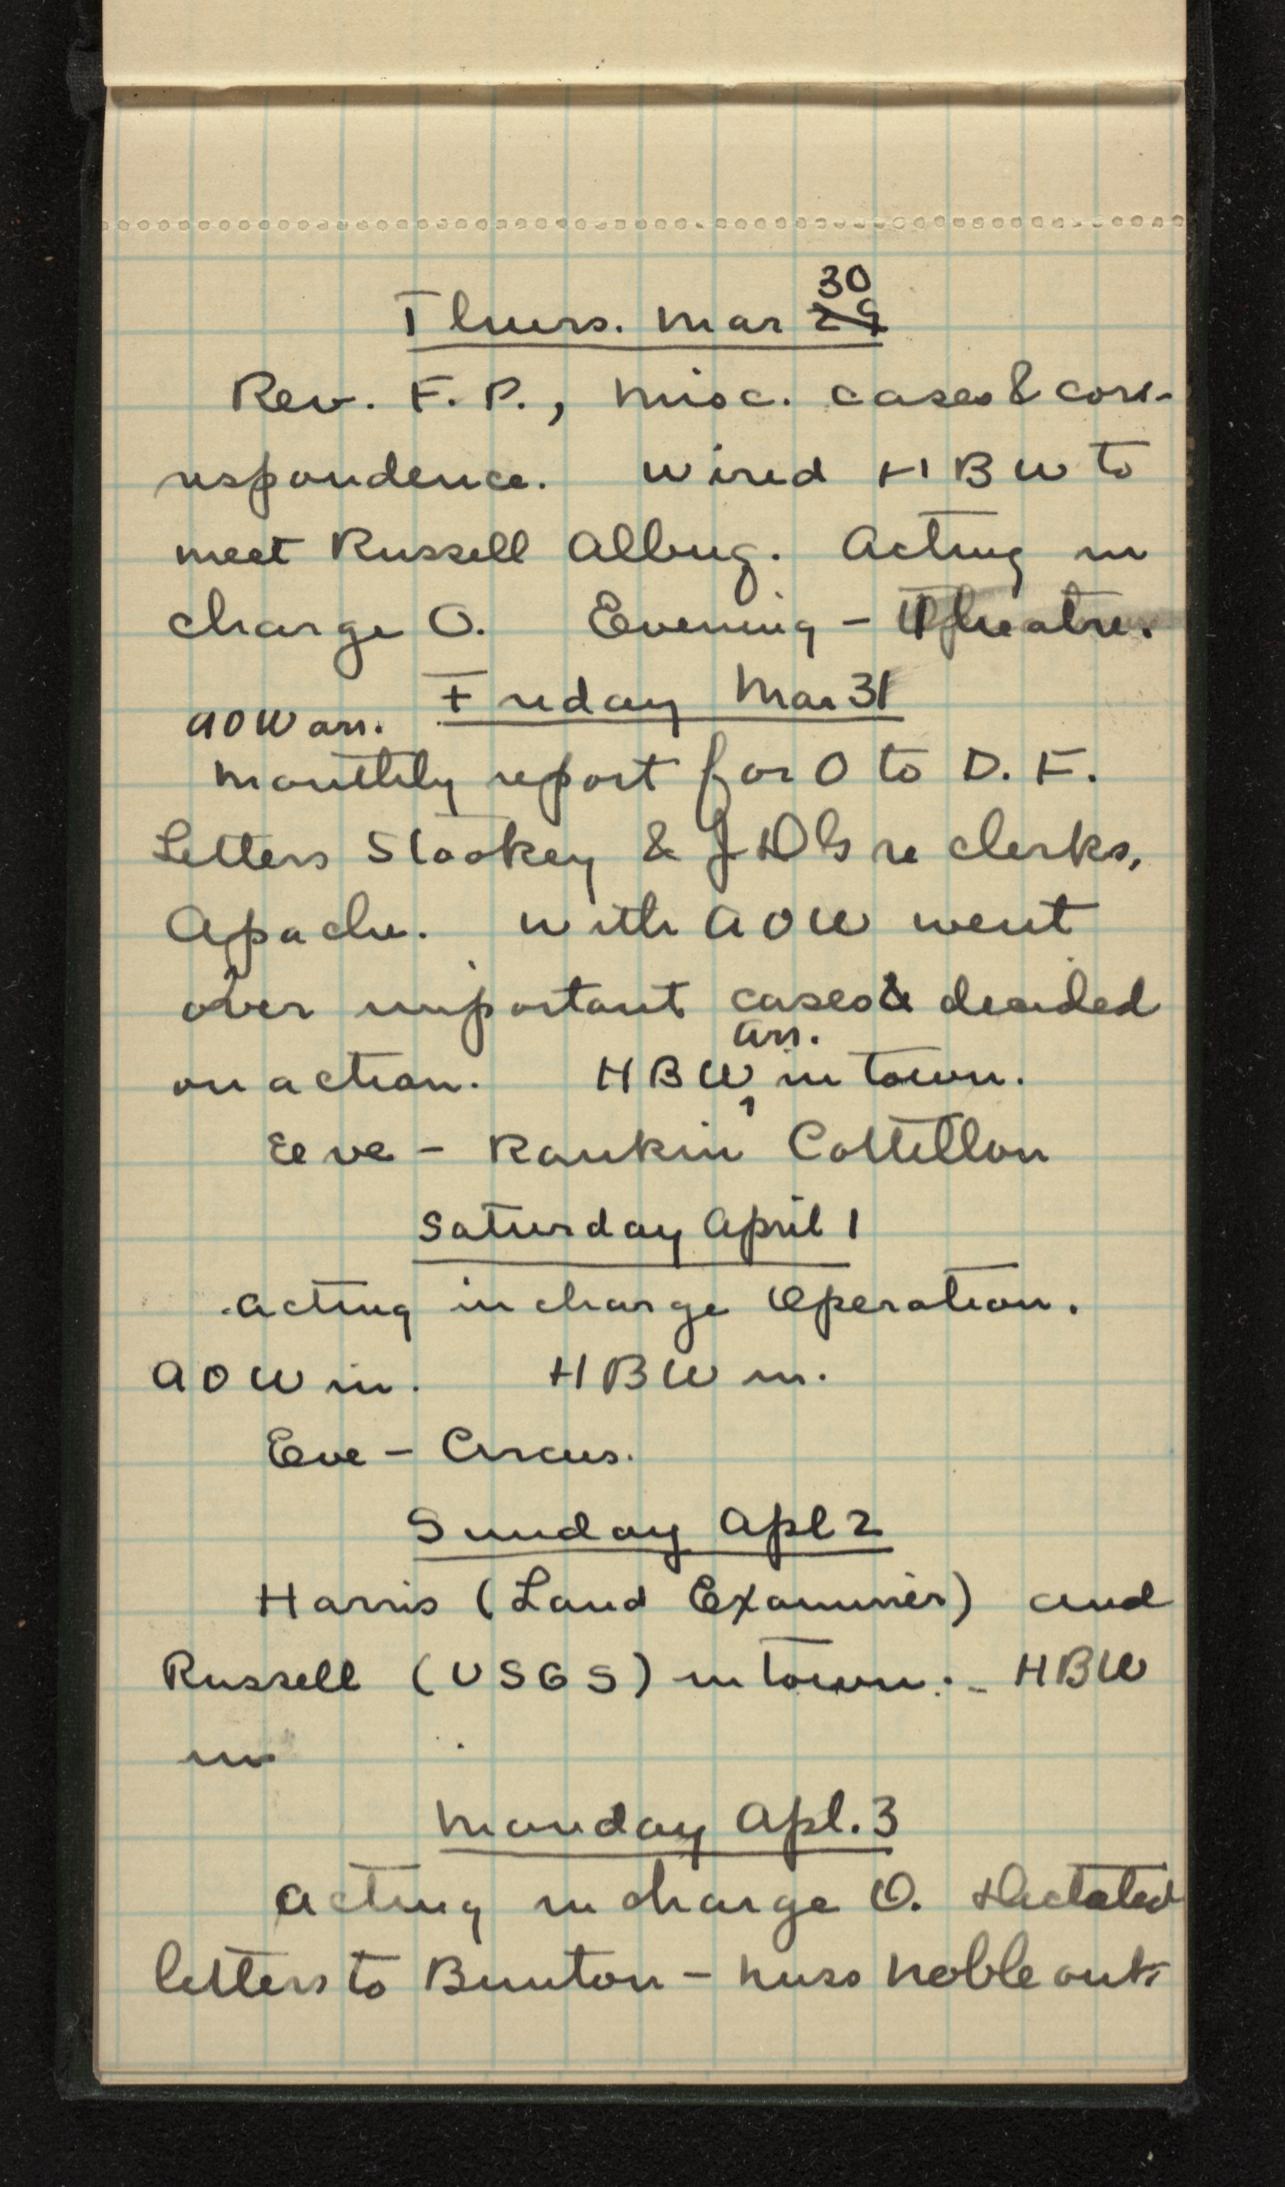 Thurs. Mar 30
29
Rev. F. P., misc. cases & cor-
respondence. Wired HBW to
meet Russell Albuq. Acting in
charge O. Evening - Theatre.
Friday Mar 31
AOW arr.
Monthly report for O to D. F.
Letters Stookey & JDG re clerks,
Apache. With AOW went
over important cases & decided
arr.
on action. HBW, in town.
Eeve - Rankin Cottillon
Saturday April 1
Acting in charge Operation.
AOW in. HBW in.
Eve - Circus.
Sunday Apl 2
Harris (Land Examiner) and
Russell (USGS) in town. - HBW
in
Monday Apl. 3
Acting in charge O. Dictated
letters to Bunton - Miss Noble out.